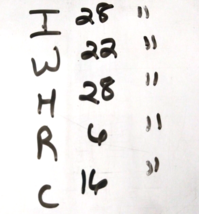 I 28 "
W 22 "
H 28 "
R 6 "
C 16 "